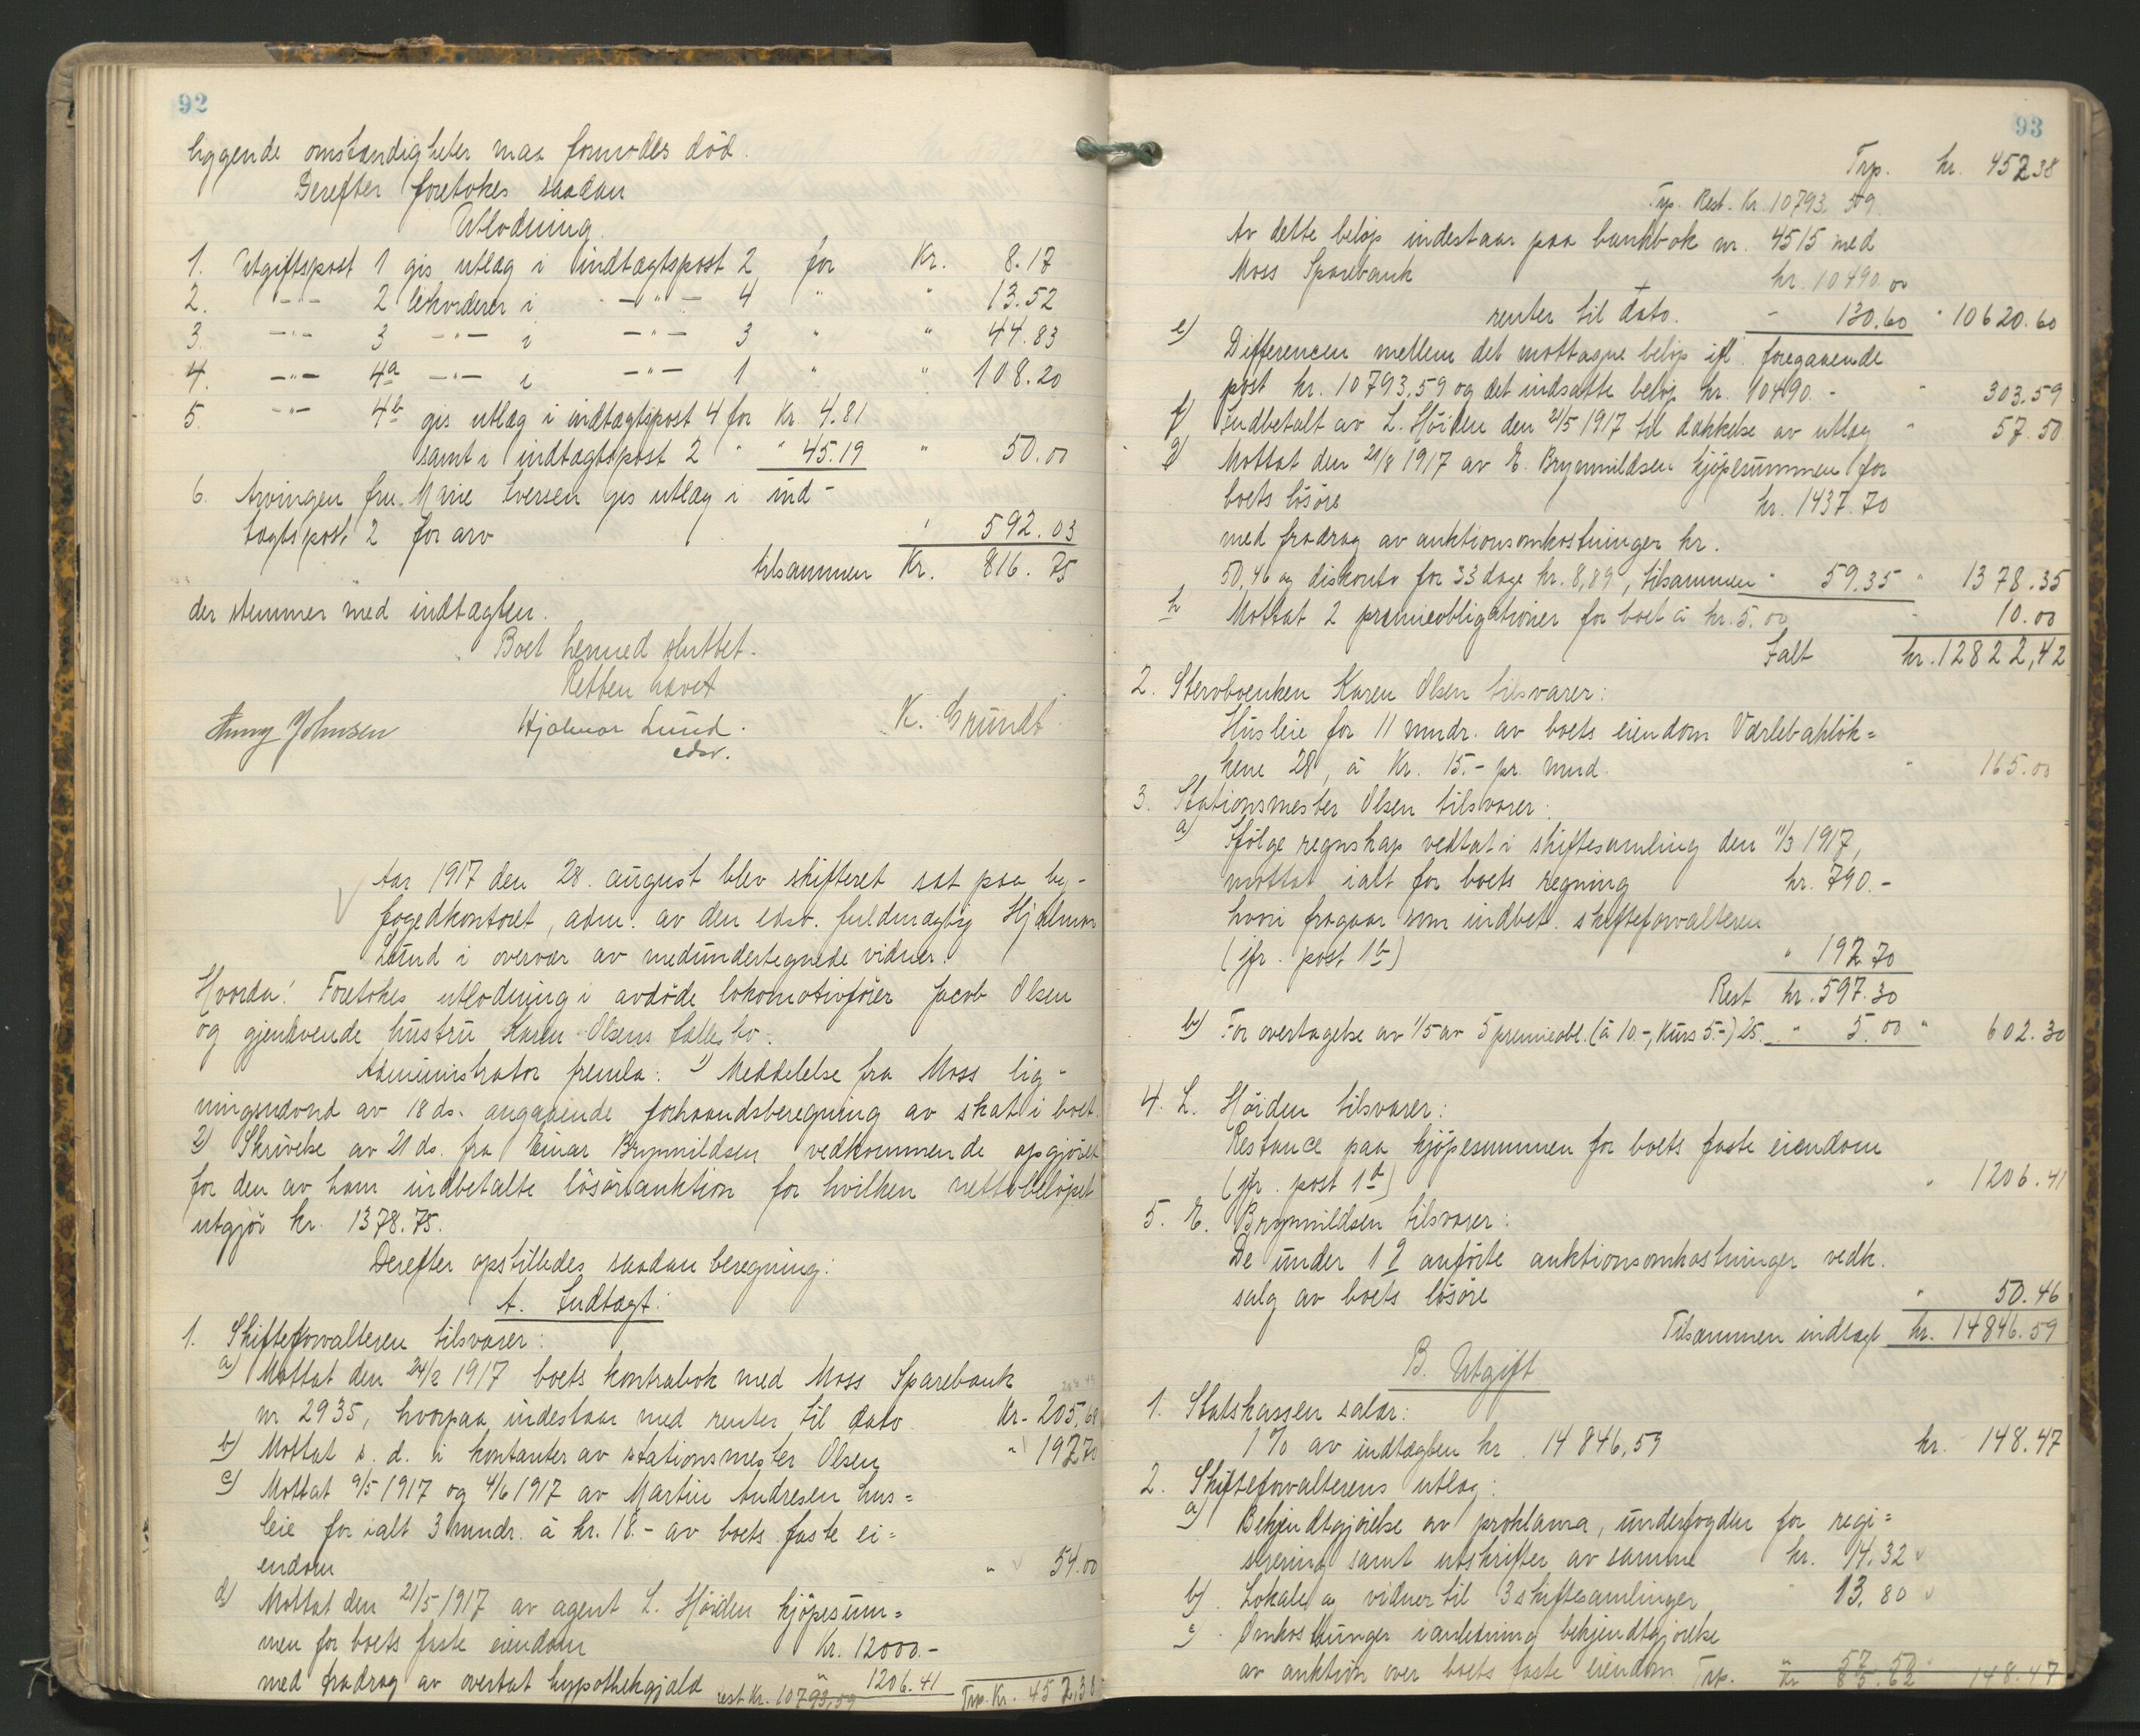 92
liggende omstændigheter maa formodes död.
Derefter foretokes saadan
Utlodning.
1. Utgiftspost 1 gis utlæg i indtægtspost 2 for Kr. 8.18
2. -"- 2 likviderer i -"- 4 " " 13.52
3. -"- 3 -"- i -"- 3 " " 44.83
4. -"- 4a -"- i -"- 1 " " 108.20
5. -"- 4b gis utlæg i indtægtspost 4 for Kr. 4.81
samt i indtægtspost 2 " " 45.19 " 50.00
6. Arvingen fru Marie Iversen gis utlæg i ind-
tægtspost 2 for arv " 592.03
tilsammen Kr. 816.75
der stemmer med indtægten.
Boet hermed sluttet.
Retten hævet
Hjalmar Lund. K. Grundt
edsv.
Aar 1917 den 28. august blev skifteret sat paa by-
fogedkontoret, adm. av den edsv. fuldmægtig Hjalmar
Lund i overvær av medundertegnede vidner.
Hvorda! Foretokes utlodning i avdöde lokomotivförer Jacob Olsen
og gjenlevende hustru Karen Olsens fællesbo.
Administrator fremla: 1) Meddelelse fra Moss lig-
ningsnævnd av 18 ds. angaaende forhaandsberegning av skat i boet.
2) Skrivelse av 21 ds. fra Einar Brynnildsen vedkommende opgjöret
for den av ham indbetalte lösöreauktion for hvilken nettobelöpet
utgjör kr. 1378.75.
Derefter opstilledes saadan beregning:
A. Indtægt:
1. Skifteforvalteren tilsvarer:
a) Mottat den 24/2 1917 boets kontrabok med Moss Sparebank
nr 2935, hvorpaa indestaar med renter til dato Kr. 205,68
b) Mottat s. d. i kontanter av stationsmester Olsen " 192.70
c) Mottat 9/5 1917 og 4/6 1917 av Martin Andresen hus=
leie for ialt 3 mndr. à kr. 18.- av boets faste ei=
endom " 54.00
d) Mottat den 21/5 1917 av agent L. Höiden kjöpesum=
men for boets faste eiendom Kr. 12000.-
med fradrag av overtat hypothekgjæld " 1206.41
rest Kr. 10793,59 Trp. Kr. 452,38
93
Trp. kr. 452.38
Trp. Rest. Kr. 10793.59
Av dette belöp indestaar paa bankbok nr. 4515 med
Moss Sparebank kr. 10490.00
renter til dato. - 130.60 " 10620.60
e) Differencen mellem det mottagne belöp ifl. foregaaende
post kr. 10793,59 og det indsatte belöp kr. 10490.- " 303.59
f) Indbetalt av L. Höiden den 21/5 1917 til dækkelse av utlæg " 57.50
g) Mottat den 21/8 1917 av E. Brynnildsen kjöpesummen for
boets lösöre kr. 1437.70
med fradrag av auktionsomkostninger kr.
50,46 og diskonto for 33 dage kr. 8,89, tilsammen " 59.35 " 1378.35
h Mottat 2 premieobligationer for boet à kr. 5.00 " 10.00
Ialt kr. 12822,42
2. Stervboenken Karen Olsen tilsvarer:
Husleie for 11 mndr. av boets eiendom Værlebakk=
kene 28, à Kr. 15.- pr. mnd. " 165.00
3. Stationsmester Olsen tilsvarer:
a) Ifölge regnskap vedtat i skiftesamling den 11/3 1917,
mottat ialt for boets regning kr. 790.-
hvori fragaar som indbet. skifteforvalteren
(jfr. post 1b) " 192.70
Rest kr. 597.30
b) For overtagelse av 1/5 av 5 premieobl. (à 10.-, Kurs 5.-) 25. " 5.00 " 602.30
4. L. Höiden tilsvarer:
Restance paa kjöpesummen for boets faste eiendom
(jfr. post 1d) " 1206.41
5. E. Brynnildsen tilsvarer:
De under 1g anförte auktionsomkostninger vedk.
salg av boets lösöre " 50.46
Tilsammen indtægt kr. 14846.59
B. Utgift
1. Statskassen salær:
1% av indtægten kr. 14846,59 kr. 148.47
2. Skifteforvalterens utlæg:
a) Bekjendtgjörelse av proklama, underfogden for regi=
strering samt utskrifter av samme kr. 14.32
b) Lokale og vidner til 3 skiftesamlinger " 13.80
c Omkostninger i anledning bekjendtgjörelse
av auktion over boets faste eiendom " 57.50
Trp. Kr 85.62 148.47